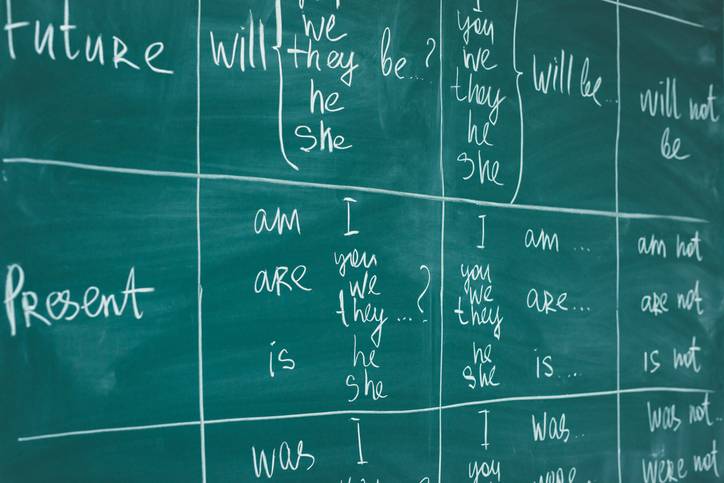 Future
will
we
they
he
she
be...?
I
you
we
they
he
she
will be...
will not
be
Present
am I
are you
we
they ...?
is he
she
I am ...
you
we are...
they
he
she is...
am not
are not
is not
was I
I was..
you
was not..
were not